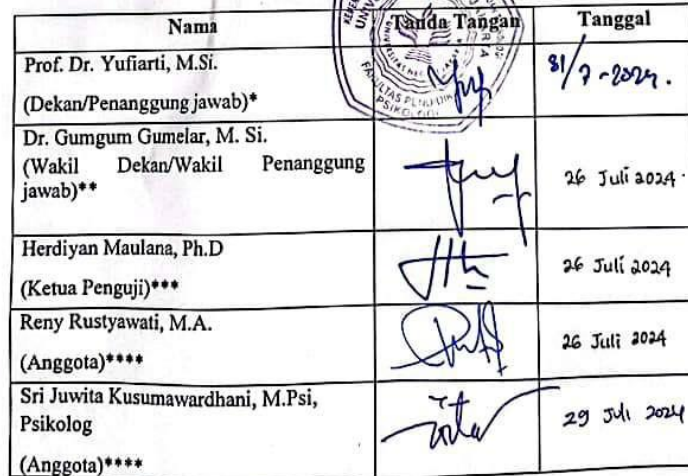 Nama Tanda Tangan Tanggal
Prof. Dr. Yufiarti, M.Si.
(Dekan/Penanggung jawab)*
31/7-2024.
Dr. Gumgum Gumelar, M. Si.
(Wakil Dekan/Wakil Penanggung
jawab)**
26 Juli 2024.
Herdiyan Maulana, Ph.D
(Ketua Penguji)***
26 Juli 2024
Reny Rustyawati, M.A.
(Anggota)****
26 Juli 2024
Sri Juwita Kusumawardhani, M.Psi,
Psikolog
(Anggota)****
29 Juli 2024